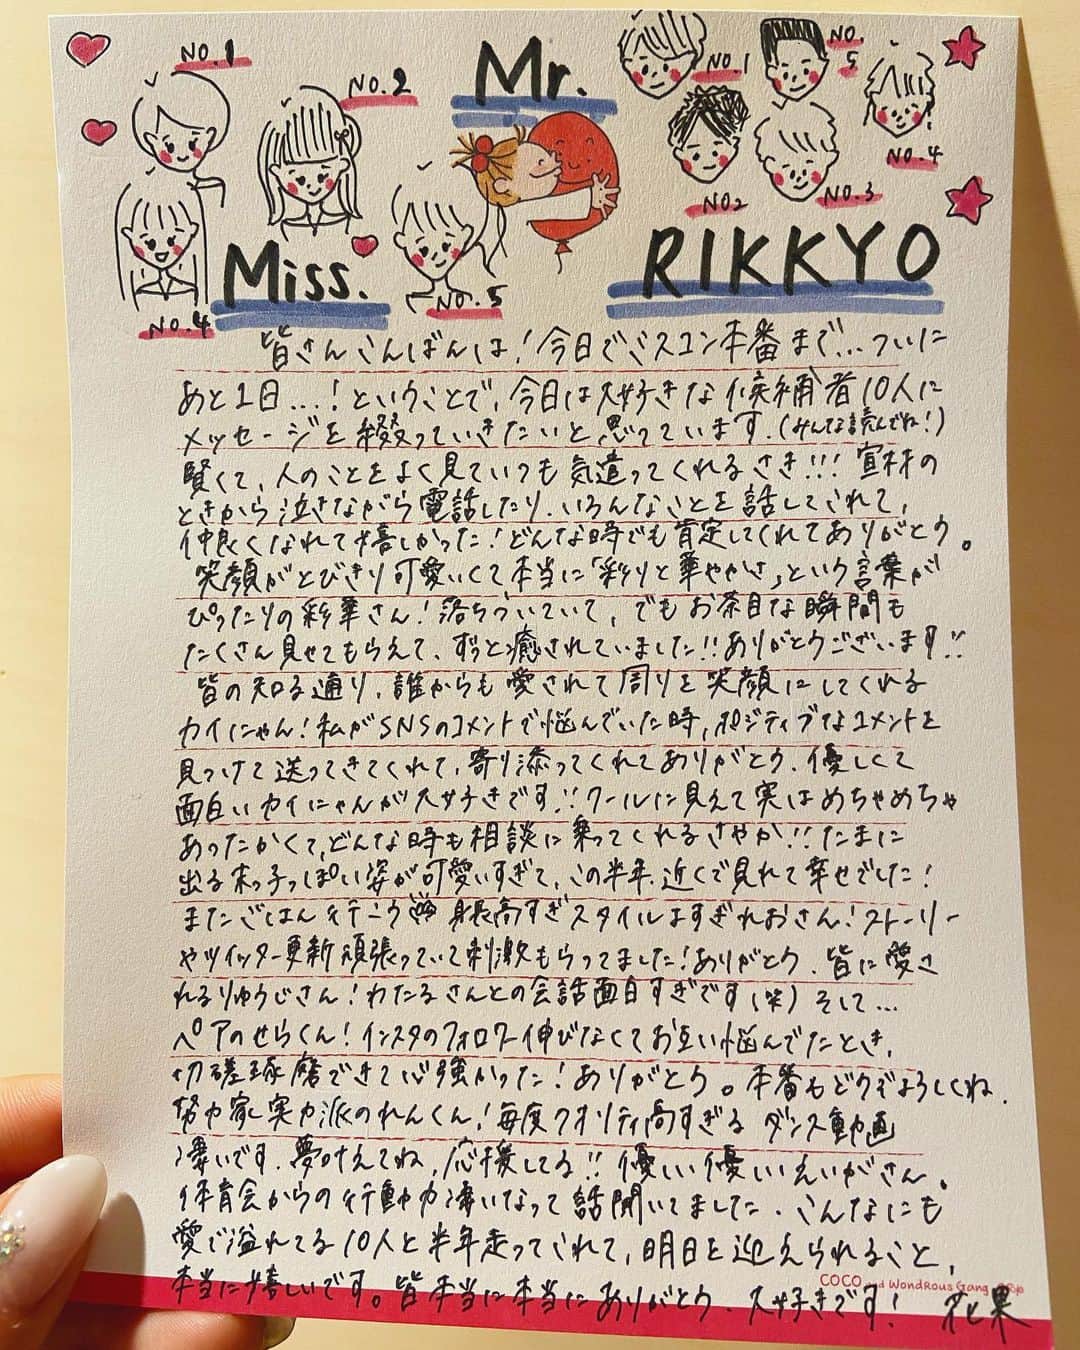 NO.1
NO.2
Mr.
NO.1
NO.5
NO.4
NO2
NO.3
Miss.
RIKKYO
NO.4
NO.5
皆さんこんばんは!今日でミスコン本番まで…ついに
あと1日…!ということで、今日は大好きな候補者10人に
メッセージを綴っていきたいと思っています.(みんな読んでね!)
賢くて、人のことをよく見ていつも気遣ってくれるさき!!!宣材の
ときから泣きながら電話したり、いろんなことを話してこれて、
仲良くなれて嬉しかった!どんな時でも肯定してくれてありがとう。
笑顔がとびきり可愛いくて本当に「彩りと華やかさ」という言葉が
ぴったりの彩華さん!落ちついていて、でもお茶目な瞬間も
たくさん見せてもらえて、ずっと癒されていました!!ありがとうございます!!
皆の知る通り、誰からも愛されて周りを笑顔にしてくれる
カイにゃん!私がSNSのコメントで悩んでいた時、ポジティブなコメントを
見つけて送ってきてくれて、寄り添ってくれてありがとう.優しくて
面白いカイにゃんが大好きです!!クールに見えて実はめちゃめちゃ
あったかくて、どんな時も相談に乗ってくれるさやか!!たまに
出る末っ子っぽい姿が可愛いすぎて、この半年、近くで見れて幸せでした!
またごはん行こう 身長高すぎスタイルよすぎれおさん!ストーリー
やツイッター更新頑張っていて刺激もらってました!ありがとう.皆に愛さ
れるりゅうじさん!わたるさんとの会話面白すぎです(笑)そして…
ペアのせらくん!インスタのフォロワー伸びなくてお互い悩んでたとき、
切磋琢磨できて心強かった!ありがとう。本番もどうぞよろしくね.
努力家し実力派のれんくん!毎度クオリティ高すぎるダンス動画
凄いです.夢叶えてね,応援してる!!優しい優しいえいがさん。
体育会からの行動力凄いなって話聞いてました.こんなにも
愛で溢れてる10人と半年走ってこれて、明日を迎えられること、
本当に嬉しいです。皆本当に本当にありがとう.大好きです!
COCO and WondRous Gang